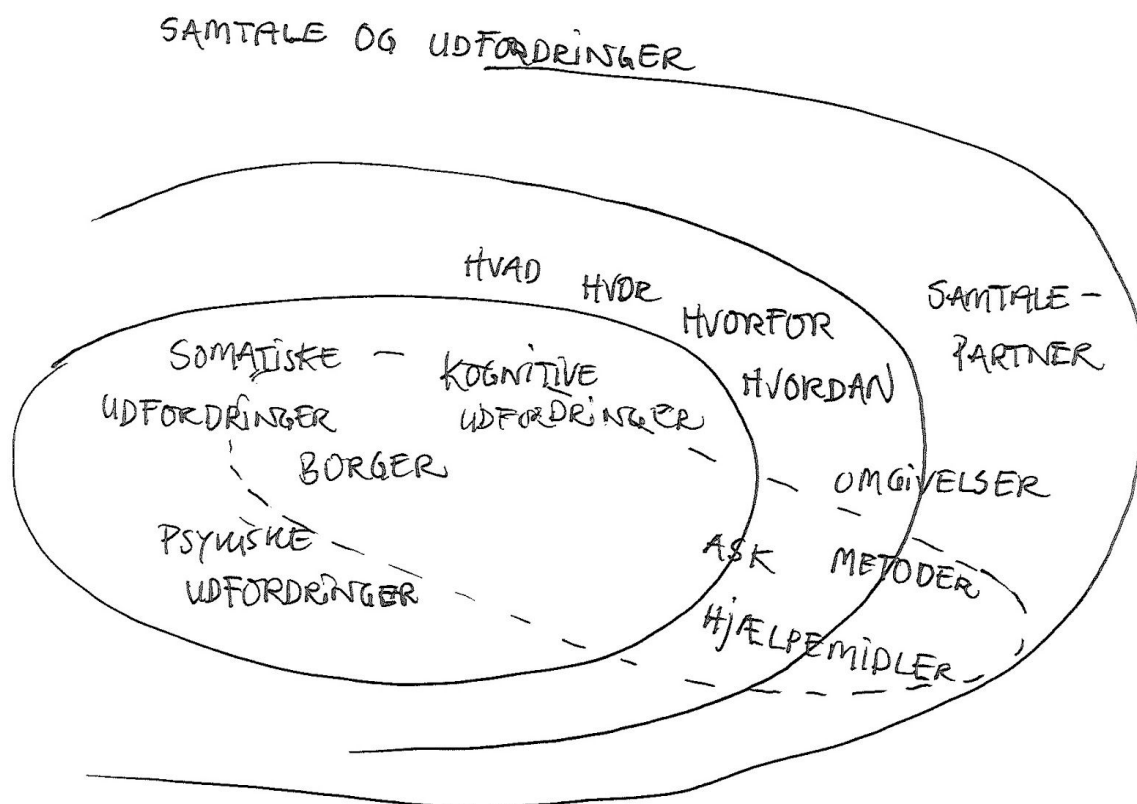 SAMTALE OG UDFORDRINGER
HVAD HVOR
HVORFOR
HVORDAN
SAMTALE-
PARTNER
SOMATISKE - KOGNITIVE
UDFORDRINGER UDFORDRINGER
BORGER
PSYKISKE
UDFORDRINGER
OMGIVELSER
ASK METODER
HJÆLPEMIDLER